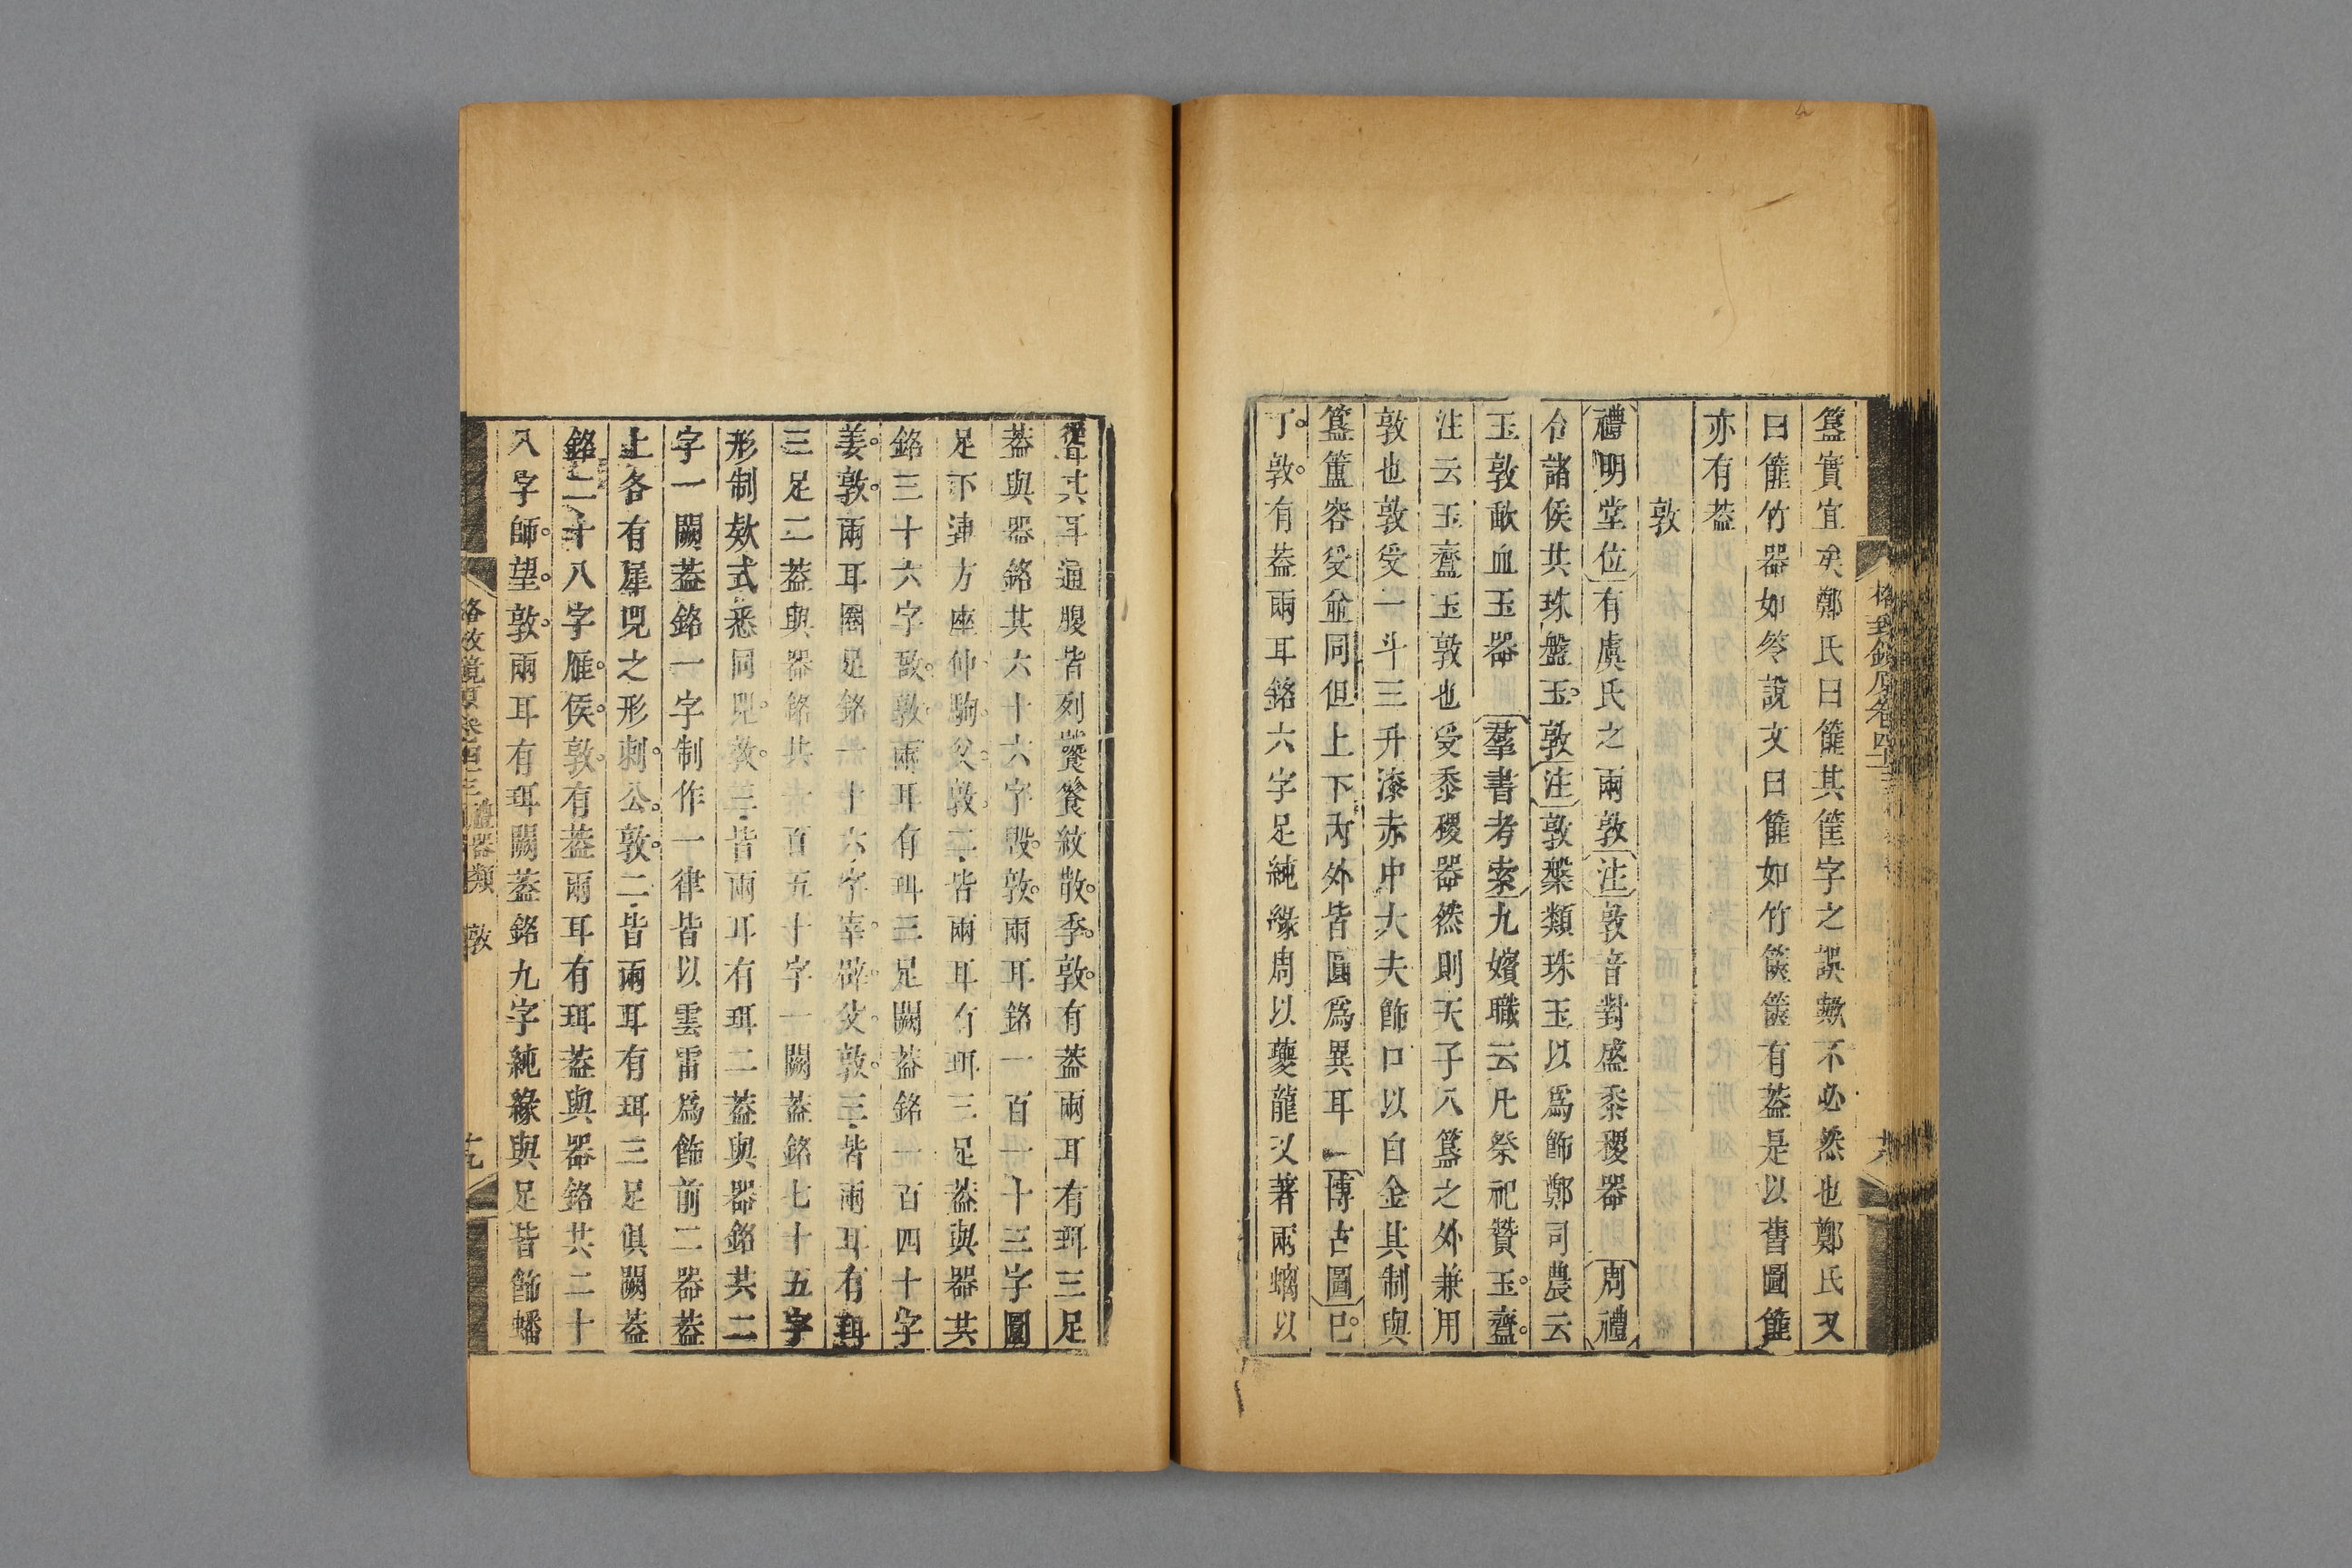 格致鏡原卷四十三
簋實宜矣鄭氏曰籬其筐字之誤歟不必然也鄭氏又
曰籬竹器如笭說文曰籬如竹篋篋有葢是以舊圖籬
亦有葢
敦
禮明堂位有虞氏之兩敦注敦音對盛黍稷器 周禮
合諸侯共珠盤玉敦注敦槃類珠玉以爲飾鄭司農云
玉敦歃血玉器 羣書考索九嬪職云凡祭祀贊玉齍
注云玉齍玉敦也受黍稷器然則天子八簋之外兼用
敦也敦受一斗三升漆赤中大夫飾口以白金其制與
簋簠容受竝同但上下內外皆圓爲異耳 博古圖巳
丁敦有葢兩耳銘六字足純緣周以夔龍又著兩螭以
從其耳通腹皆列饕餮紋散季敦有葢兩耳有珥三足
葢與器銘其六十六字㲃敦兩耳銘一百一十三字圜
足下連方座仲駒父敦二皆兩耳有珥三足葢與器共
銘三十六字敔敦兩耳有珥三足闕葢銘一百四十字
姜敦兩耳圈足銘一十六字宰辟父敦三皆兩耳有珥
三足二葢與器銘共一百五十字一闕葢銘七十五字
形制欵式悉同兕敦三皆兩耳有珥二葢與器銘共二
字一闕葢銘一字制作一律皆以雲雷爲飾前二器葢
上各有犀兕之形刺公敦二皆兩耳有珥三足俱闕葢
銘二十八字雁侯敦有葢兩耳有珥葢與器銘共二十
八字師望敦兩耳有珥闕葢銘九字純緣與足皆飾蟠
格致鏡原卷四十三 禮器類 敦 十九